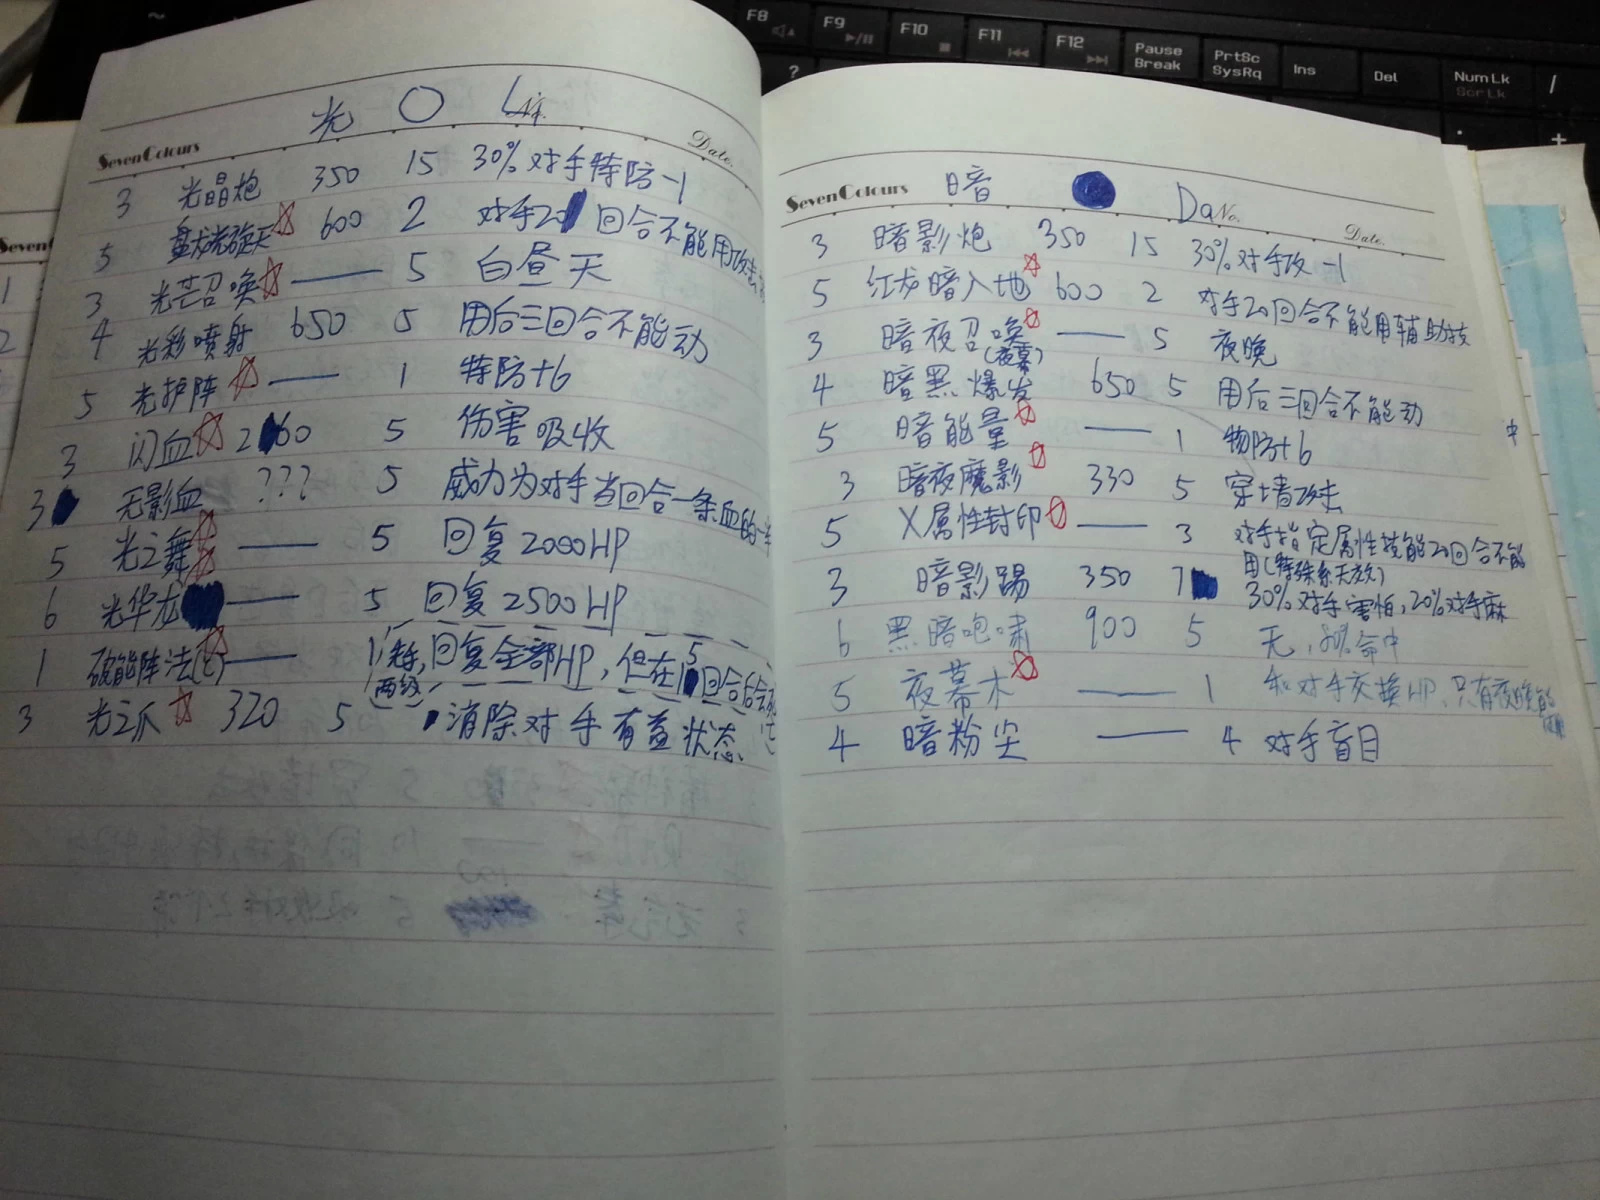 F8
F9
F10
F11
F12
Pause
Break
PrtSc
SysRq
Ins
Del
Num Lk
Scr Lk
/
?
+
光 ○ Li
SevenColours No. Date.
3 光晶炮 350 15 30%对手特防-1
5 盘龙光旋天☆ 600 2 对手20回合不能用攻击
3 光芒召唤☆ —— 5 白昼天
4 光彩喷射 650 5 用后三回合不能动
5 光护阵☆ —— 1 特防+6
3 闪血☆ 260 5 伤害吸收
3 无影血 ??? 5 威力为对手当回合一条血的一半
5 光之舞☆ —— 5 回复2000HP
6 光华龙 —— 5 回复2500HP
1 破能阵法(七)☆ —— 1,回复全部HP,但在5回合后会
两级
3 光之爪☆ 320 5 消除对手有益状态
暗 ● Da
SevenColours No. Date.
3 暗影炮 350 15 30%对手攻-1
5 红龙暗入地☆ 600 2 对手20回合不能用辅助技
3 暗夜召唤☆ —— 5 夜晚
(夜幕)
4 暗黑爆发 650 5 用后三回合不能动
5 暗能量☆ —— 1 物防+6
3 暗夜魔影☆ 330 5 穿墙攻击
5 X属性封印☆ —— 3 对手指定属性技能20回合不能
用(特殊系无效)
3 暗影踢 350 7 30%对手害怕,20%对手麻
6 黑暗咆啸 900 5 无,命中
5 夜幕木☆ —— 1 和对手交换HP,只有夜晚能
4 暗粉尘 —— 4 对手盲目
中